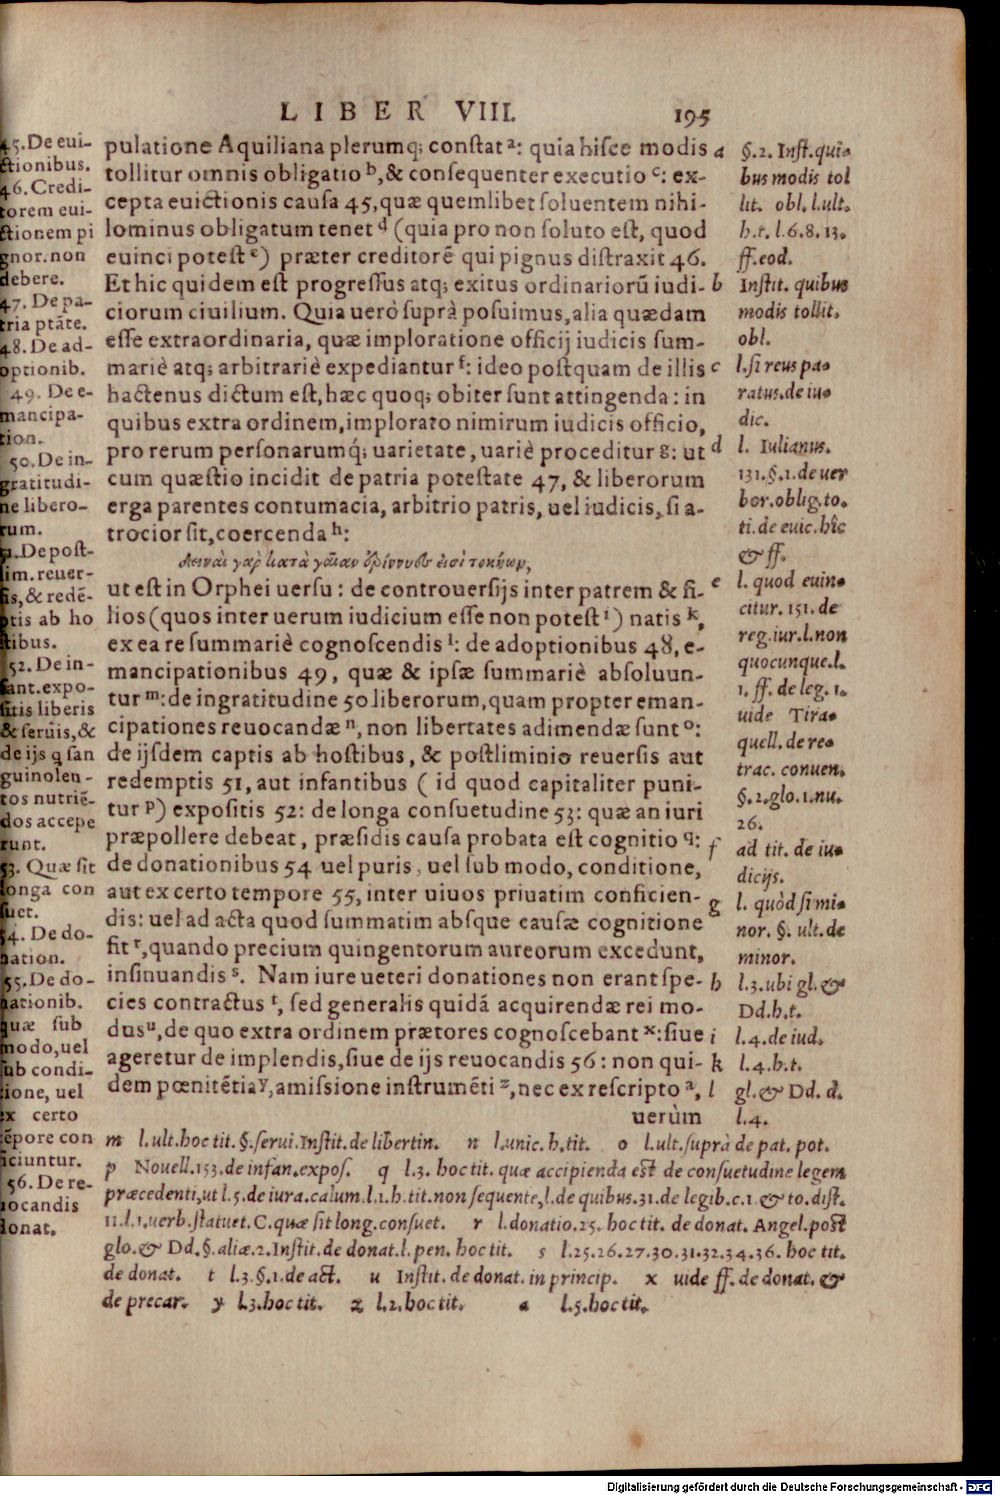 LIBER VIII. 195
45. De eui-
ctionibus.
46. Credi-
torem eui-
ctionem pi
gnor. non
debere.
47. De pa-
tria ptāte.
48. De ad-
optionib.
49. De e-
mancipa-
tion.
50. De in-
gratitudi-
ne libero-
rum.
51. De post-
lim. reuer-
sis, & redē-
ptis ab ho
stibus.
52. De in-
fant. expo-
sitis liberis
& seruis, &
de ijs q san
guinolen-
tos nutriē-
dos accepe
runt.
53. Quæ sit
longa con
suet.
54. De do-
nation.
55. De do-
nationib.
quæ sub
modo, uel
sub condi-
tione, uel
ex certo
tēpore con
ficiuntur.
56. De re-
uocandis
donat.
pulatione Aquiliana plerumq; constat a: quia hisce modis
tollitur omnis obligatio b, & consequenter executio c: ex-
cepta euictionis causa 45, quæ quemlibet soluentem nihi-
lominus obligatum tenet d (quia pro non soluto est, quod
euinci potest e) præter creditorē qui pignus distraxit 46.
Et hic quidem est progressus atq; exitus ordinariorū iudi-
ciorum ciuilium. Quia uerò suprà posuimus, alia quædam
esse extraordinaria, quæ imploratione officij iudicis sum-
mariè atq; arbitrariè expediantur f: ideo postquam de illis
hactenus dictum est, hæc quoq; obiter sunt attingenda: in
quibus extra ordinem, implorato nimirum iudicis officio,
pro rerum personarumq́; uarietate, uariè proceditur g: ut
cum quæstio incidit de patria potestate 47, & liberorum
erga parentes contumacia, arbitrio patris, uel iudicis, si a-
trocior sit, coercenda h:
δειναὶ γαρ̀ κατὰ γαῖαν ἐρίννυες εἰσὶ τοκήων,
ut est in Orphei uersu: de controuersijs inter patrem & fi-
lios (quos inter uerum iudicium esse non potest i) natis k,
ex ea re summariè cognoscendis l: de adoptionibus 48, e-
mancipationibus 49, quæ & ipsæ summariè absoluun-
tur m: de ingratitudine 50 liberorum, quam propter eman-
cipationes reuocandæ n, non libertates adimendæ sunt o:
de ijsdem captis ab hostibus, & postliminio reuersis aut
redemptis 51, aut infantibus ( id quod capitaliter puni-
tur p) expositis 52: de longa consuetudine 53: quæ an iuri
præpollere debeat, præsidis causa probata est cognitio q:
de donationibus 54 uel puris, uel sub modo, conditione,
aut ex certo tempore 55, inter uiuos priuatim conficien-
dis: uel ad acta quod summatim absque causæ cognitione
fit r, quando precium quingentorum aureorum excedunt,
insinuandis s. Nam iure ueteri donationes non erant spe-
cies contractus t, sed generalis quidā acquirendæ rei mo-
dus u, de quo extra ordinem prætores cognoscebant x: siue
ageretur de implendis, siue de ijs reuocandis 56: non qui-
dem pœnitētia y, amissione instrumēti z, nec ex rescripto a,
uerùm
a §. 2. Inst. qui-
bus modis tol
lit. obl. l. ult.
h. t. l. 6. 8. 13.
ff. eod.
b Instit. quibus
modis tollit.
obl.
c l. si reus pa-
ratus. de iu-
dic.
d l. Iulianus.
131. §. 1. de uer
bor. oblig. to.
ti. de euic. hîc
& ff.
e l. quod euin-
citur. 151. de
reg. iur. l. non
quocunque. l.
1. ff. de leg. 1.
uide Tira-
quell. de re-
trac. conuen.
§. 2. glo. 1. nu.
26.
f ad tit. de iu-
dicijs.
g l. quòd si mi-
nor. §. ult. de
minor.
h l. 3. ubi gl. &
Dd. h. t.
i l. 4. de iud.
k l. 4. h. t.
l gl. & Dd. d.
l. 4.
m l. ult. hoc tit. §. serui. Instit. de libertin. n l. unic. h. tit. o l. ult. suprà de pat. pot.
p Nouell. 153. de infan. expos. q l. 3. hoc tit. quæ accipienda est de consuetudine legem
præcedenti, ut l. 5. de iura. calum. l. 1. h. tit. non sequente, l. de quibus. 31. de legib. c. 1. & to. dist.
11. l. 1. uerb. statuet. C. quæ sit long. consuet. r l. donatio. 25. hoc tit. de donat. Angel. post
glo. & Dd. §. aliæ. 2. Instit. de donat. l. pen. hoc tit. s l. 25. 26. 27. 30. 31. 32. 34. 36. hoc tit.
de donat. t l. 3. §. 1. de act. u Instit. de donat. in princip. x uide ff. de donat. &
de precar. y l. 3. hoc tit. z l. 2. hoc tit. a l. 5. hoc tit.
Digitalisierung gefördert durch die Deutsche Forschungsgemeinschaft - DFG